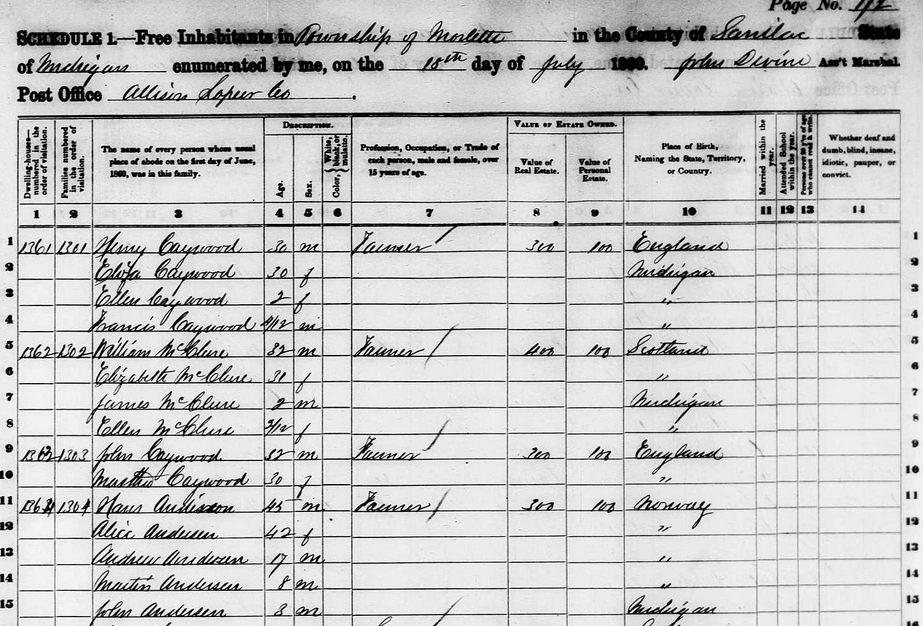 Page No. 172
SCHEDULE 1.—Free Inhabitants in Township of Marlette in the County of Sanilac State
of Michigan enumerated by me, on the 18th day of July 1860. John Divine Ass't Marshal.
Post Office Allison Lapeer Co.
Dwelling-house—numbered in the order of visitation.
Families numbered in the order of visitation.
The name of every person whose usual place of abode on the first day of June, 1860, was in this family.
DESCRIPTION.
Age.
Sex.
Color, White, black, or mulatto.
Profession, Occupation, or Trade of each person, male and female, over 15 years of age.
VALUE OF ESTATE OWNED.
Value of Real Estate.
Value of Personal Estate.
Place of Birth, Naming the State, Territory, or Country.
Married within the year.
Attended School within the year.
Persons over 20 y'rs of age who cannot read & write.
Whether deaf and dumb, blind, insane, idiotic, pauper, or convict.
1 2 3 4 5 6 7 8 9 10 11 12 13 14
1 1361 1301 Henry Caywood 30 m Farmer 300 100 England 1
2 Eliza Caywood 30 f Michigan 2
3 Ellen Caywood 2 f " 3
4 Francis Caywood /12 m " 4
5 1362 1302 William McClure 32 m Farmer 400 100 Scotland 5
6 Elizabeth McClure 31 f " 6
7 James McClure 2 m Michigan 7
8 Ellen McClure /12 f " 8
9 1363 1303 John Caywood 32 m Farmer 300 100 England 9
10 Martha Caywood 30 f " 10
11 1364 1304 Hans Anderson 45 m Farmer 300 100 Norway 11
12 Alice Andersen 42 f " 12
13 Andrew Andersen 17 m " 13
14 Martin Andersen 8 m " 14
15 John Andersen 3 m Michigan 15